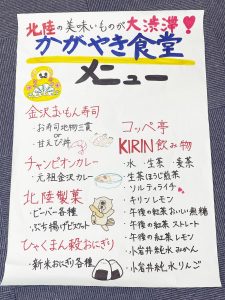 北陸の美味いものが大渋滞!
かがやき食堂
メニュー
金沢おもん寿司
・お寿司地物三貫
or
・甘えび丼
チャンピオンカレー
・元祖金沢カレー
北陸製菓
・ビーバー各種
・ぶち揚げビスケット
ひゃくまん穀おにぎり
・新米おにぎり各種
コッペ亭
KIRIN飲み物
・水・生茶・麦茶
・生茶ほうじ煎茶
・ソルティライチ
・キリンレモン
・午後の紅茶おいしい無糖
・午後の紅茶ストレート
・午後の紅茶レモン
・小岩井純水みかん
・小岩井純水りんご